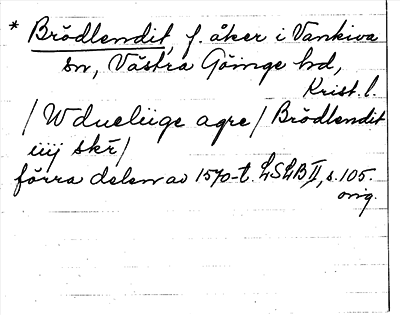 * Brödlendit, f. åker i Vankiva
sn, Västra Göinge hd,
Krist. l.
/ W dueliige agre / Brödlendit
iiij skr̄ /
förra delen av 1570-t. LSLB II, s. 105.
orig.